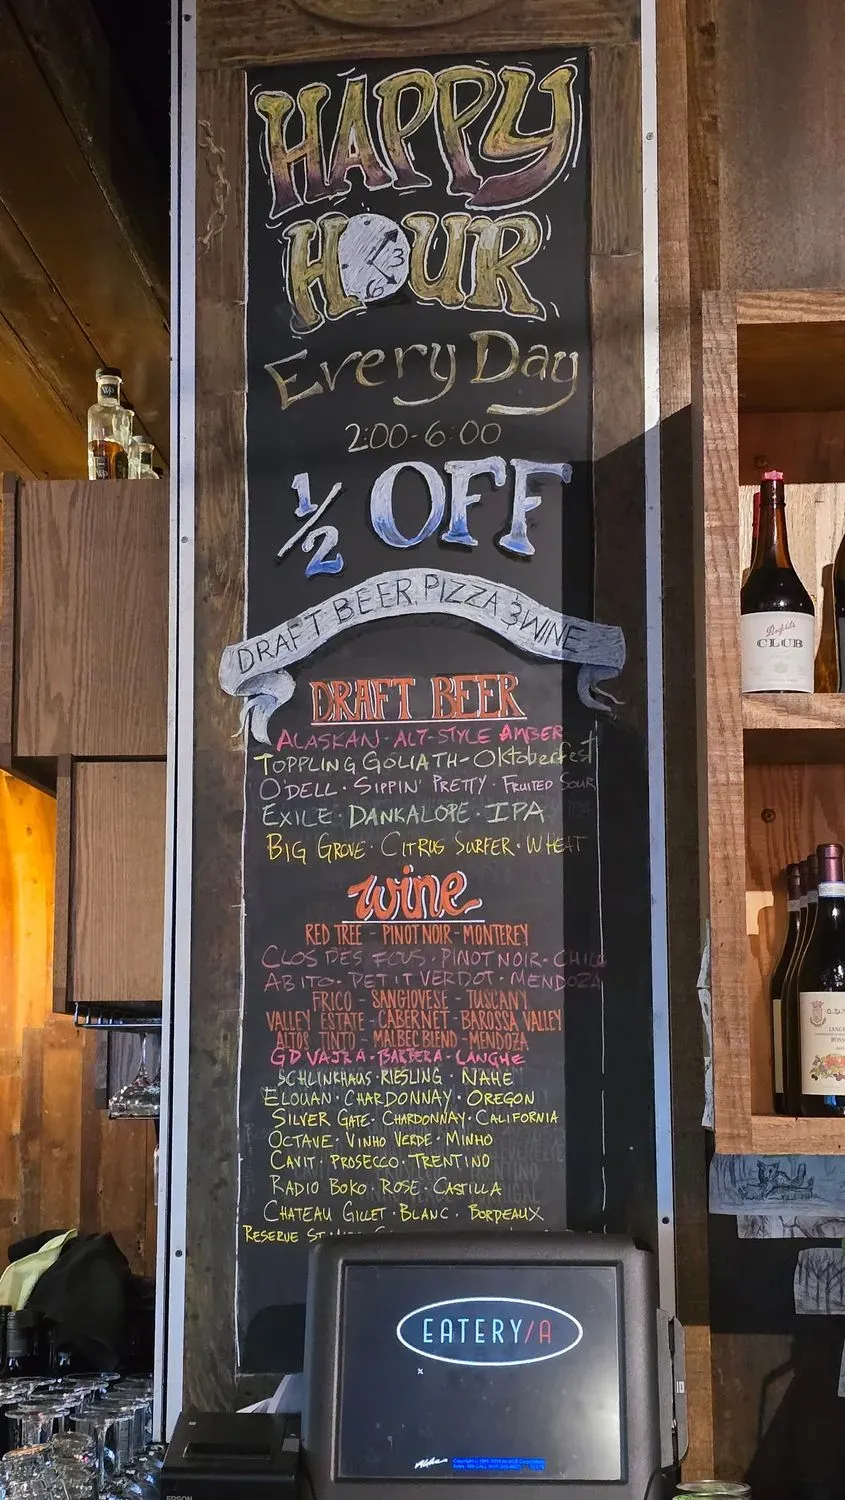 HAPPY
HOUR
3
6
Every Day
2:00-6:00
1/2 OFF
DRAFT BEER, PIZZA & WINE
DRAFT BEER
ALASKAN · ALT-STYLE AMBER
TOPPLING GOLIATH - Oktoberfest
O'DELL · SIPPIN' PRETTY · FRUITED SOUR
EXILE · DANKALOPE · IPA
BIG GROVE · CITRUS SURFER · WHEAT
wine
RED TREE - PINOT NOIR - MONTEREY
CLOS DES FOUS · PINOT NOIR · CHILE
ABITO · PETIT VERDOT · MENDOZA
FRICO - SANGIOVESE - TUSCANY
VALLEY ESTATE - CABERNET - BAROSSA VALLEY
ALTOS TINTO - MALBEC BLEND - MENDOZA
GD VAJRA · BARBERA · LANGHE
SCHLINKHAUS · RIESLING · NAHE
ELOUAN · CHARDONNAY · OREGON
SILVER GATE · CHARDONNAY · CALIFORNIA
OCTAVE · VINHO VERDE · MINHO
CAVIT · PROSECCO · TRENTINO
RADIO BOKO · ROSE · CASTILLA
CHATEAU GILLET · BLANC · BORDEAUX
RESERVE ST
EATERY/A
Penfolds
CLUB
EPSON